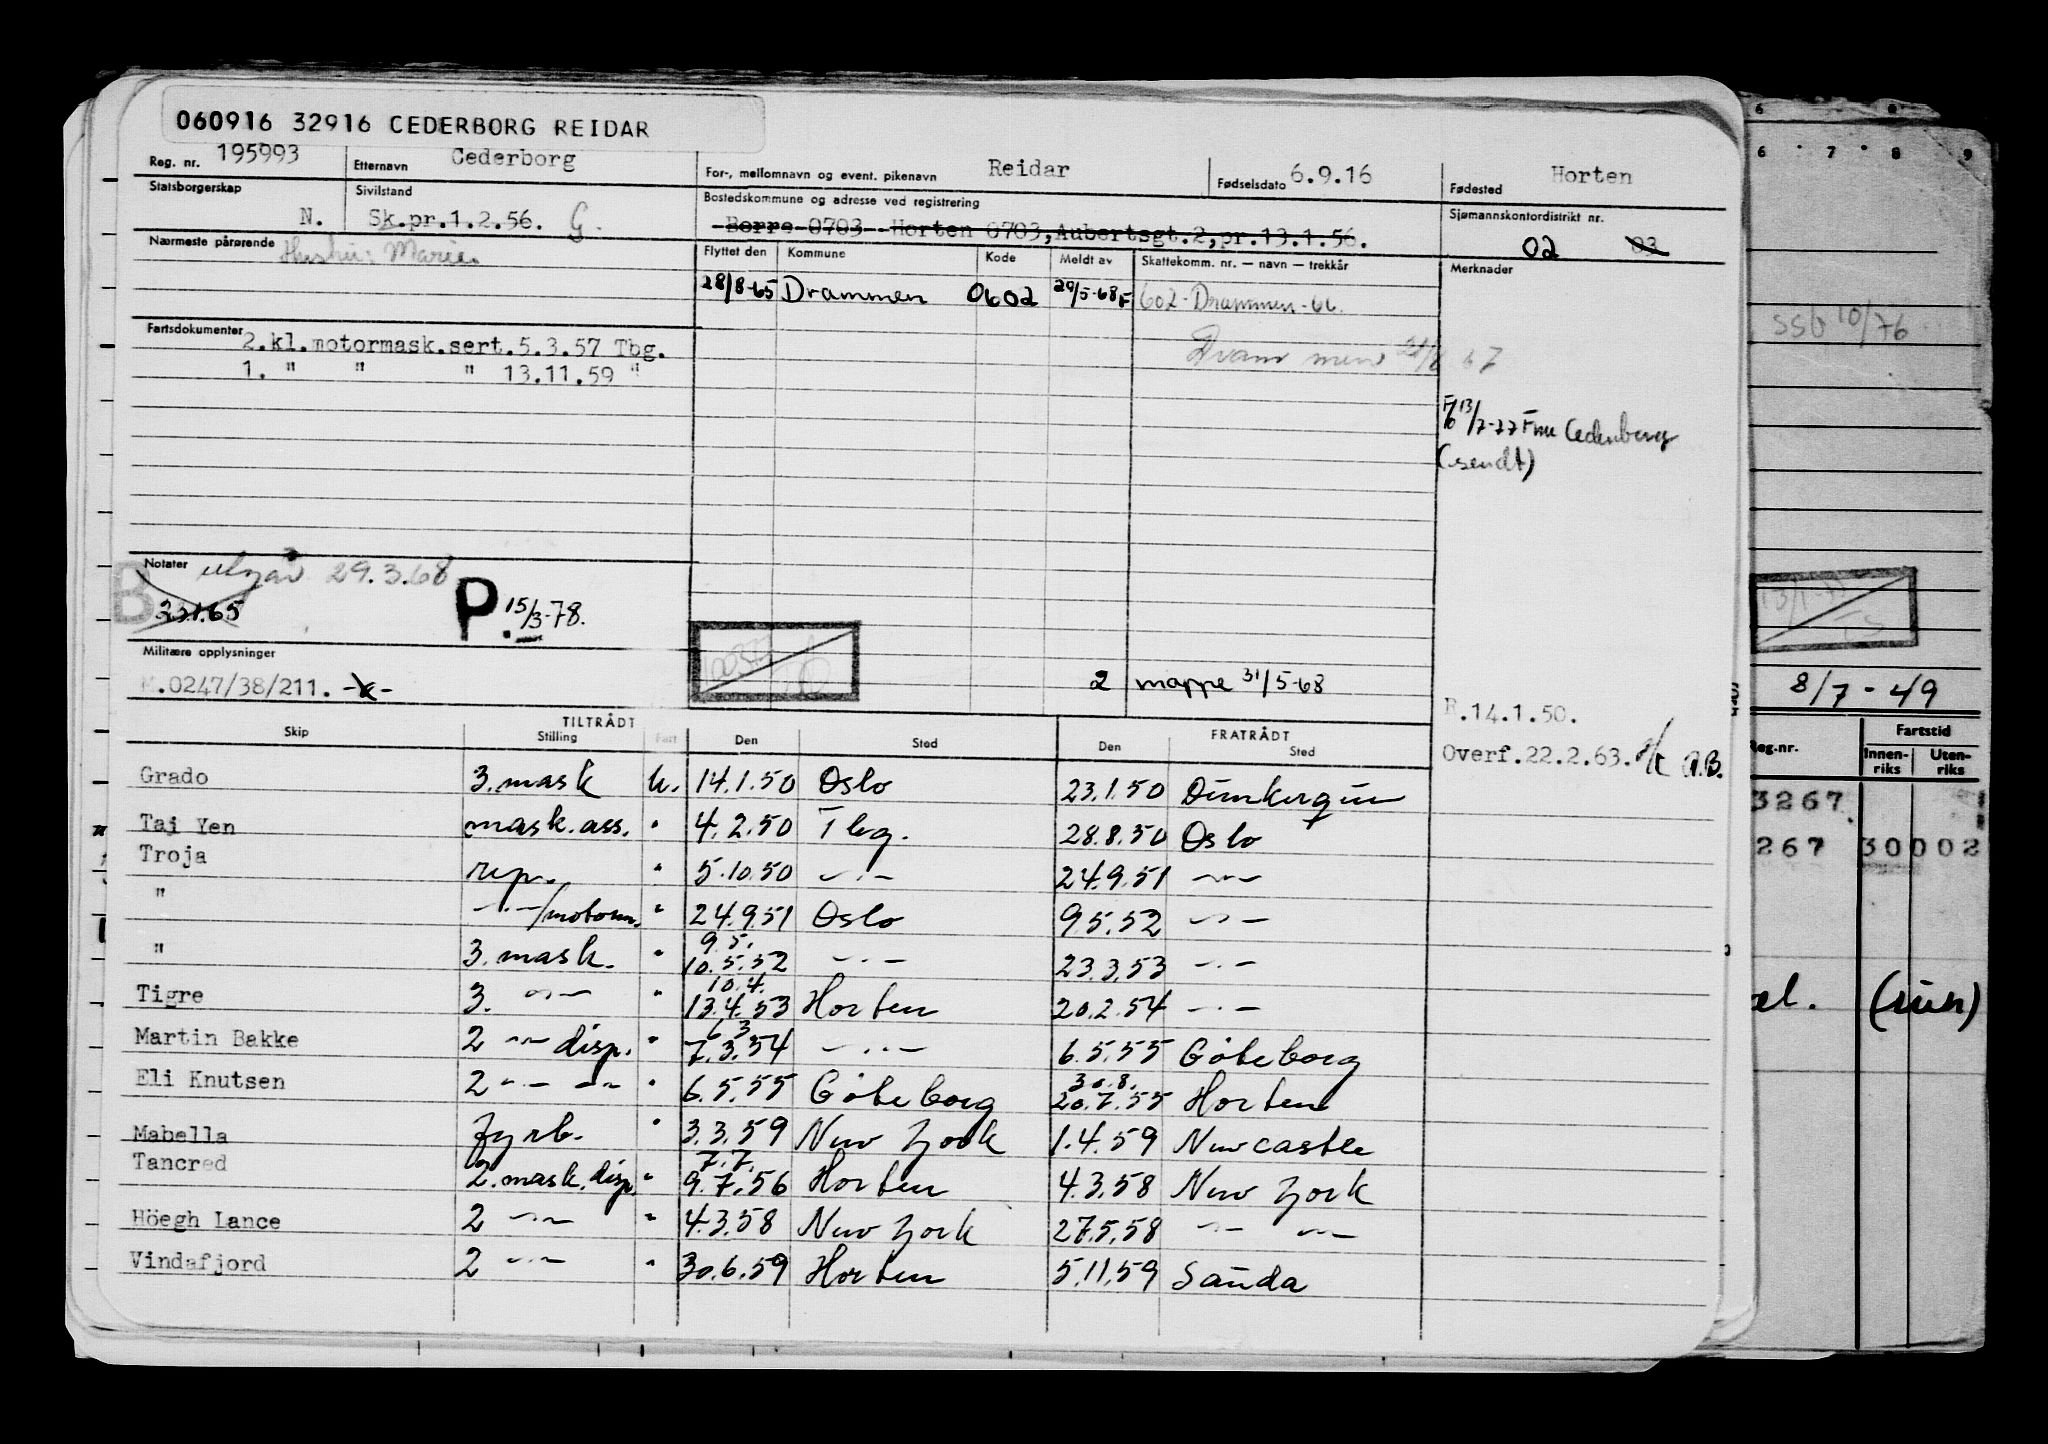 060916 32916 CEDERBORG REIDAR
Reg. nr. 195993 Etternavn Cederborg For-, mellomnavn og event. pikenavn Reidar Fødselsdato 6.9.16 Fødested Horten
Statsborgerskap N. Sivilstand Sk.pr.1.2.56. G. Bostedskommune og adresse ved registrering Sjømannskontordistrikt nr.
Borre 0703 Horten 0703, Aubertsgt.2, pr.13.1.56. 02 03
Nærmeste pårørende Hustru: Marie Flyttet den Kommune Kode Meldt av Skattekomm. nr. — navn — trekkår Merknader
28/8-65 Drammen 0602 29/5-68 F 602-Drammen-66
Fartsdokumenter
2.kl.motormask.sert.5.3.57 Tbg.
1. " " " 13.11.59 "
13/7-77 Fru Cederberg
(sendt)
Notater utgår 29.3.68
B 23.1.65 P. 15/3-78.
Militære opplysninger
M.0247/38/211. -x-
2 mappe 31/5-68
R.14.1.50.
Overf.22.2.63. A.B.
TILTRÅDT FRATRÅDT
Skip Stilling Fart Den Sted Den Sted
Grado 3. mask u. 14.1.50 Oslo 23.1.50 Dunkerque
Tai Yen mask.ass. " 4.2.50 Tbg. 28.8.50 Oslo
Troja rep. " 5.10.50 -"- 24.9.51 -"-
" -"-/motorm. " 24.9.51 Oslo 9.5.52 -"-
" 3. mask. " 9.5. 10.5.52 -"- 23.3.53 -"-
Tigre 3. -"- " 10.4. 13.4.53 Horten 20.2.54 -"-
Martin Bakke 2 -"- disp. " 6.3 7.3.54 -"- 6.5.55 Göteborg
Eli Knutsen 2 -"- -"- " 6.5.55 Göteborg 30.8. 20.7.55 Horten
Mabella fyrb. " 3.3.59 New York 1.4.59 Newcastle
Tancred 2. mask. disp. " 7.7. 9.7.56 Horten 4.3.58 New York
Höegh Lance 2 -"- " 4.3.58 New York 27.5.58 -"- -"-
Vindafjord 2 -"- " 30.6.59 Horten 5.11.59 Sauda
6 8
6 7 8 9
SSB 10/76
8/7 - 49
Reg.nr. Fartstid
Innen-riks Uten-riks
3267
267 30002